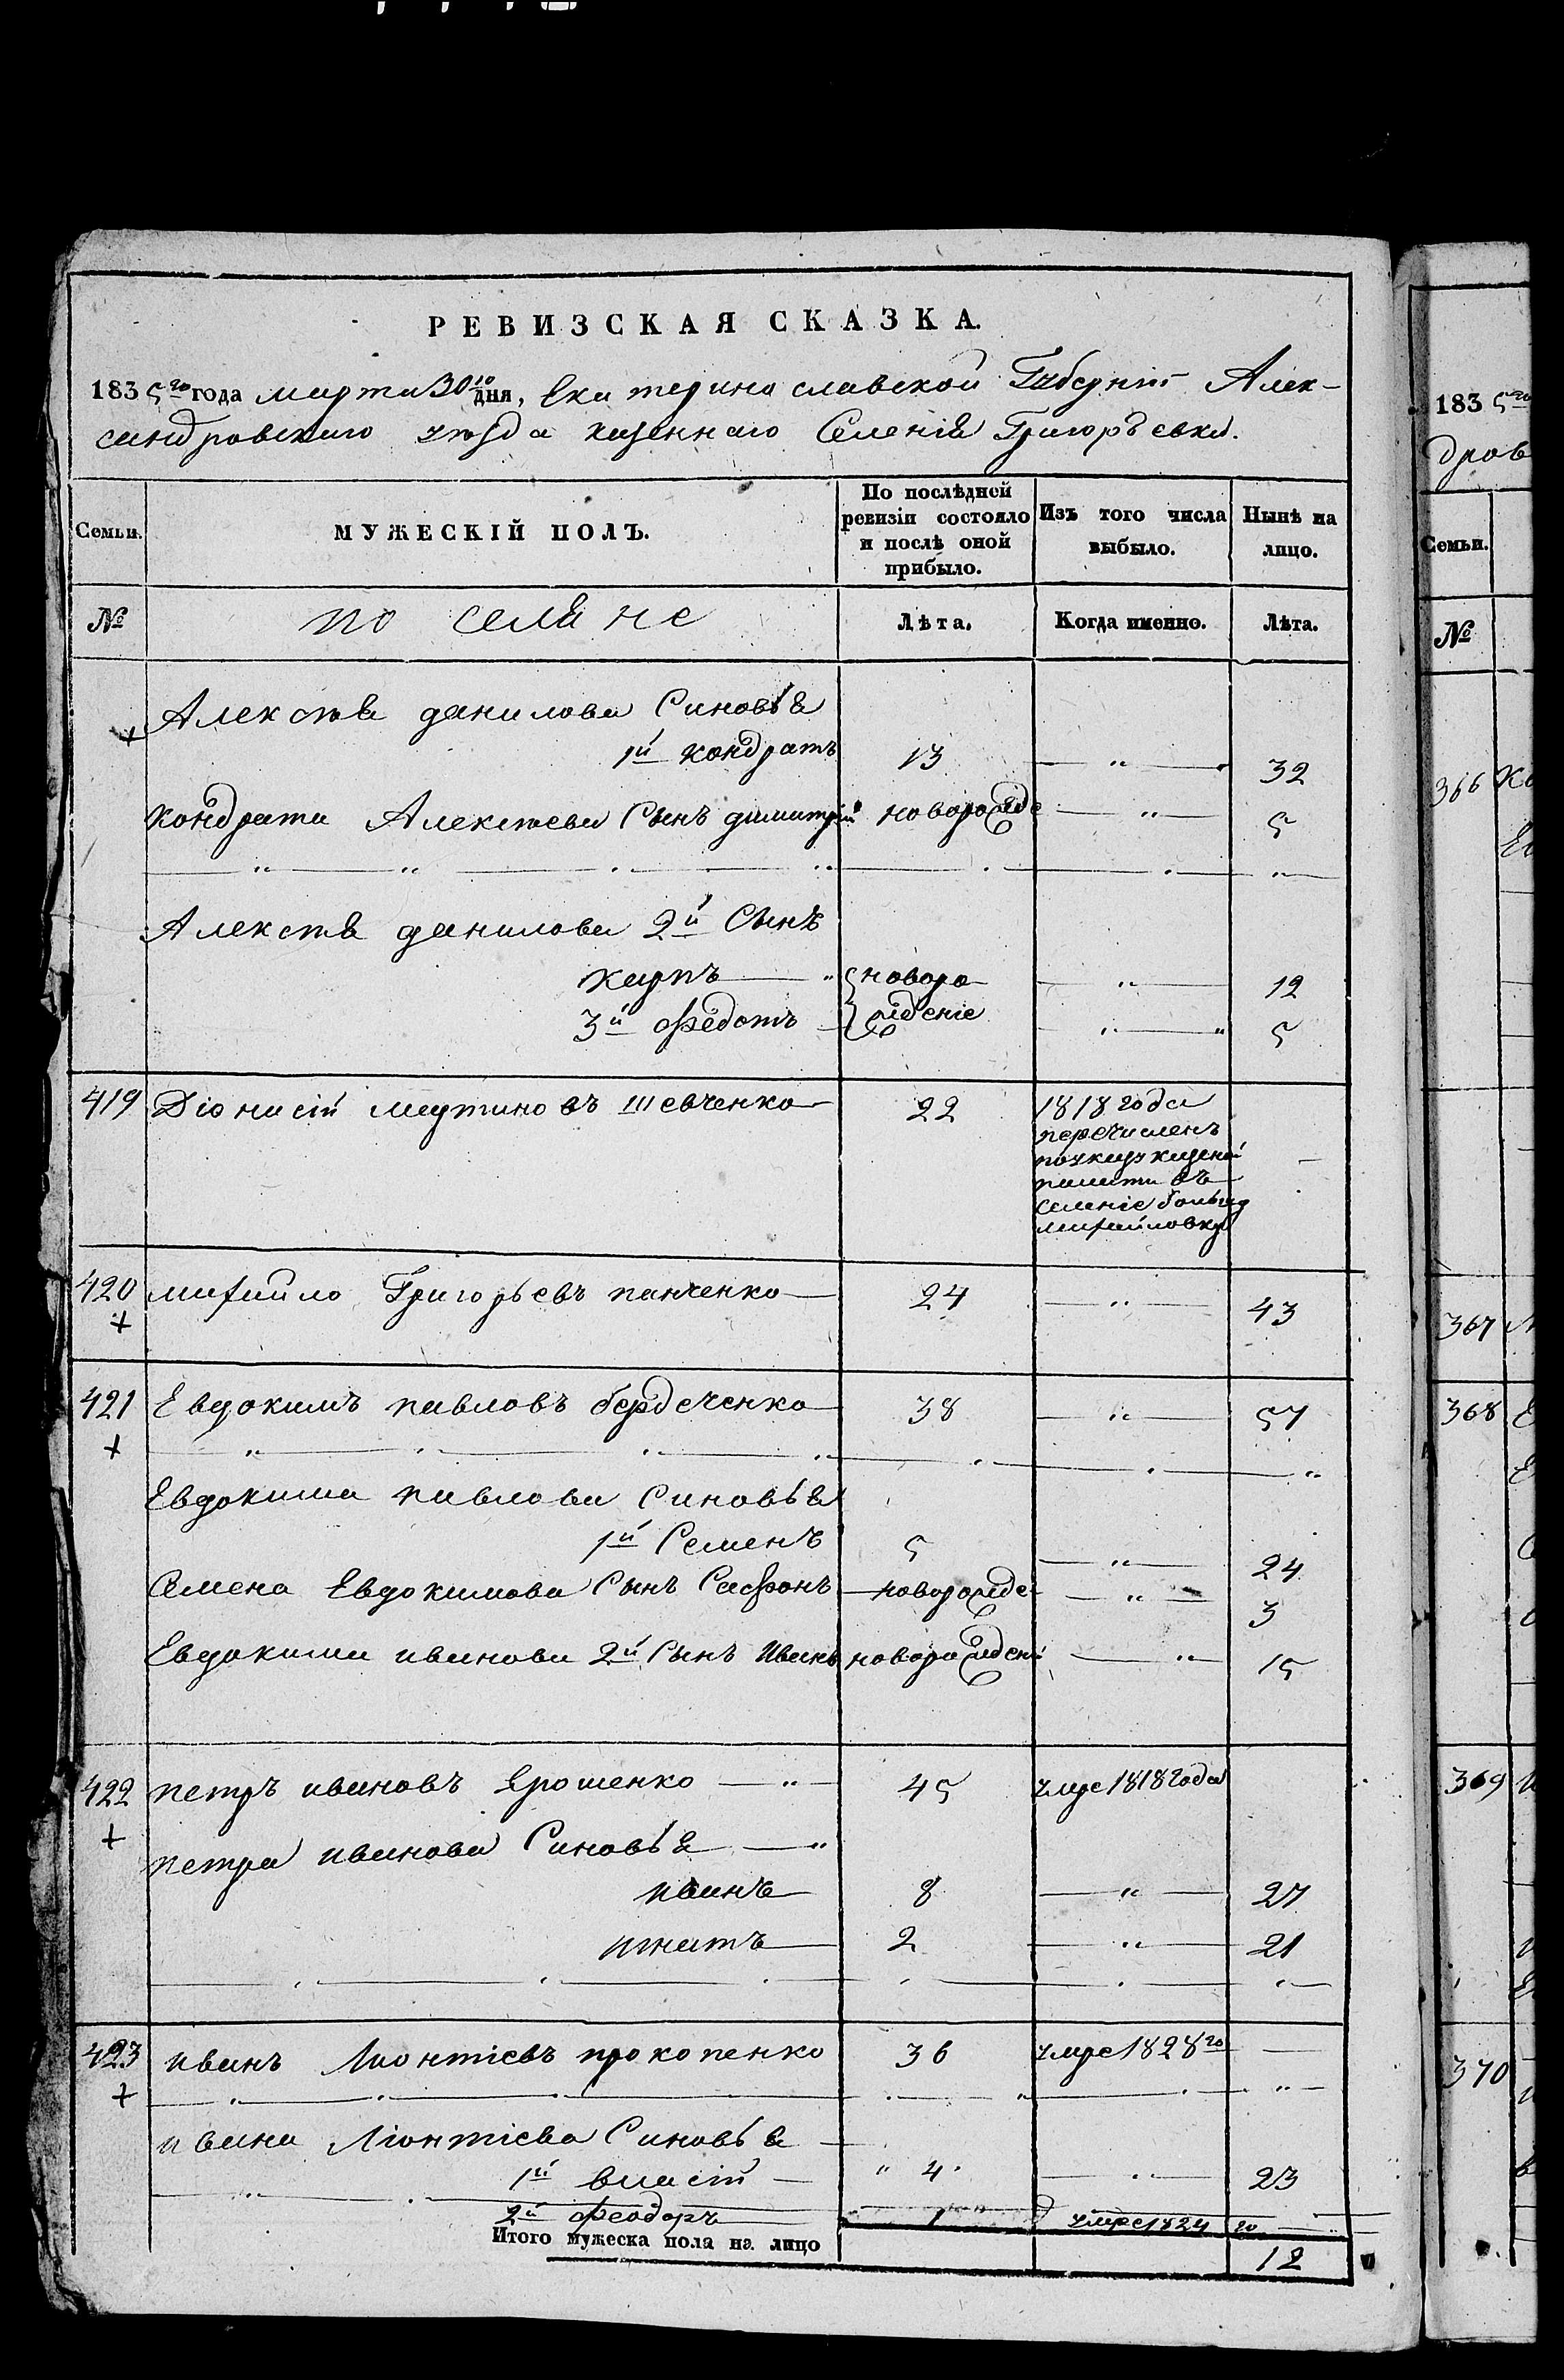 РЕВИЗСКАЯ СКАЗКА.
1835го года марта 30го дня, Екатеринославской Губерніи Алек-
сандровскаго уѣзда казеннаго Селенія Григорьевки.
Семьи.
МУЖЕСКІЙ ПОЛЪ.
По послѣдней ревизіи состояло и послѣ оной прибыло.
Изъ того числа выбыло.
Нынѣ на лицо.
№ поселяне Лѣта. Когда именно. Лѣта.
Алексѣя данилова Синовья
1й кондратъ 13 — " — 32
кондрата Алексѣева Сынъ димитрій новорожде — " — 5
Алексѣя данилова 2й Сынъ
карпъ — " новоро — " — 12
3й Федотъ — жденіе — " — 5
419 Діонисій мартиновъ шевченко 22 1818 года
перечисленъ
по указу казеной
палати въ
селеніе большу
михайловку —
420 михайло Григорьевъ панченко 24 — " — 43
421 Евдокимъ павловъ бердеченко 38 — " — 57
Евдокима павлова Синовья
1й Семенъ 5 — " — 24
Семена Евдокимова Сынъ Сафронъ новорожде — " — 3
Евдокима иванова 2й Сынъ Иванъ новорожден — " — 15
422 петръ ивановъ Ярошенко — " — 45 умре 1818 года
петра иванова Синовья — "
иванъ 8 — " — 27
игнатъ 2 — " — 21
423 иванъ Лионтіевъ прокопенко 36 умре 1828го —
ивана Ліонтіева Синовья —
1й власій — " 4. — " — 23
2й Феодоръ 1 умре 1824го —
Итого мужеска пола на лицо 12
183 5го
дров
Семьи.
№
366 Ко
367
368 Е
369
370